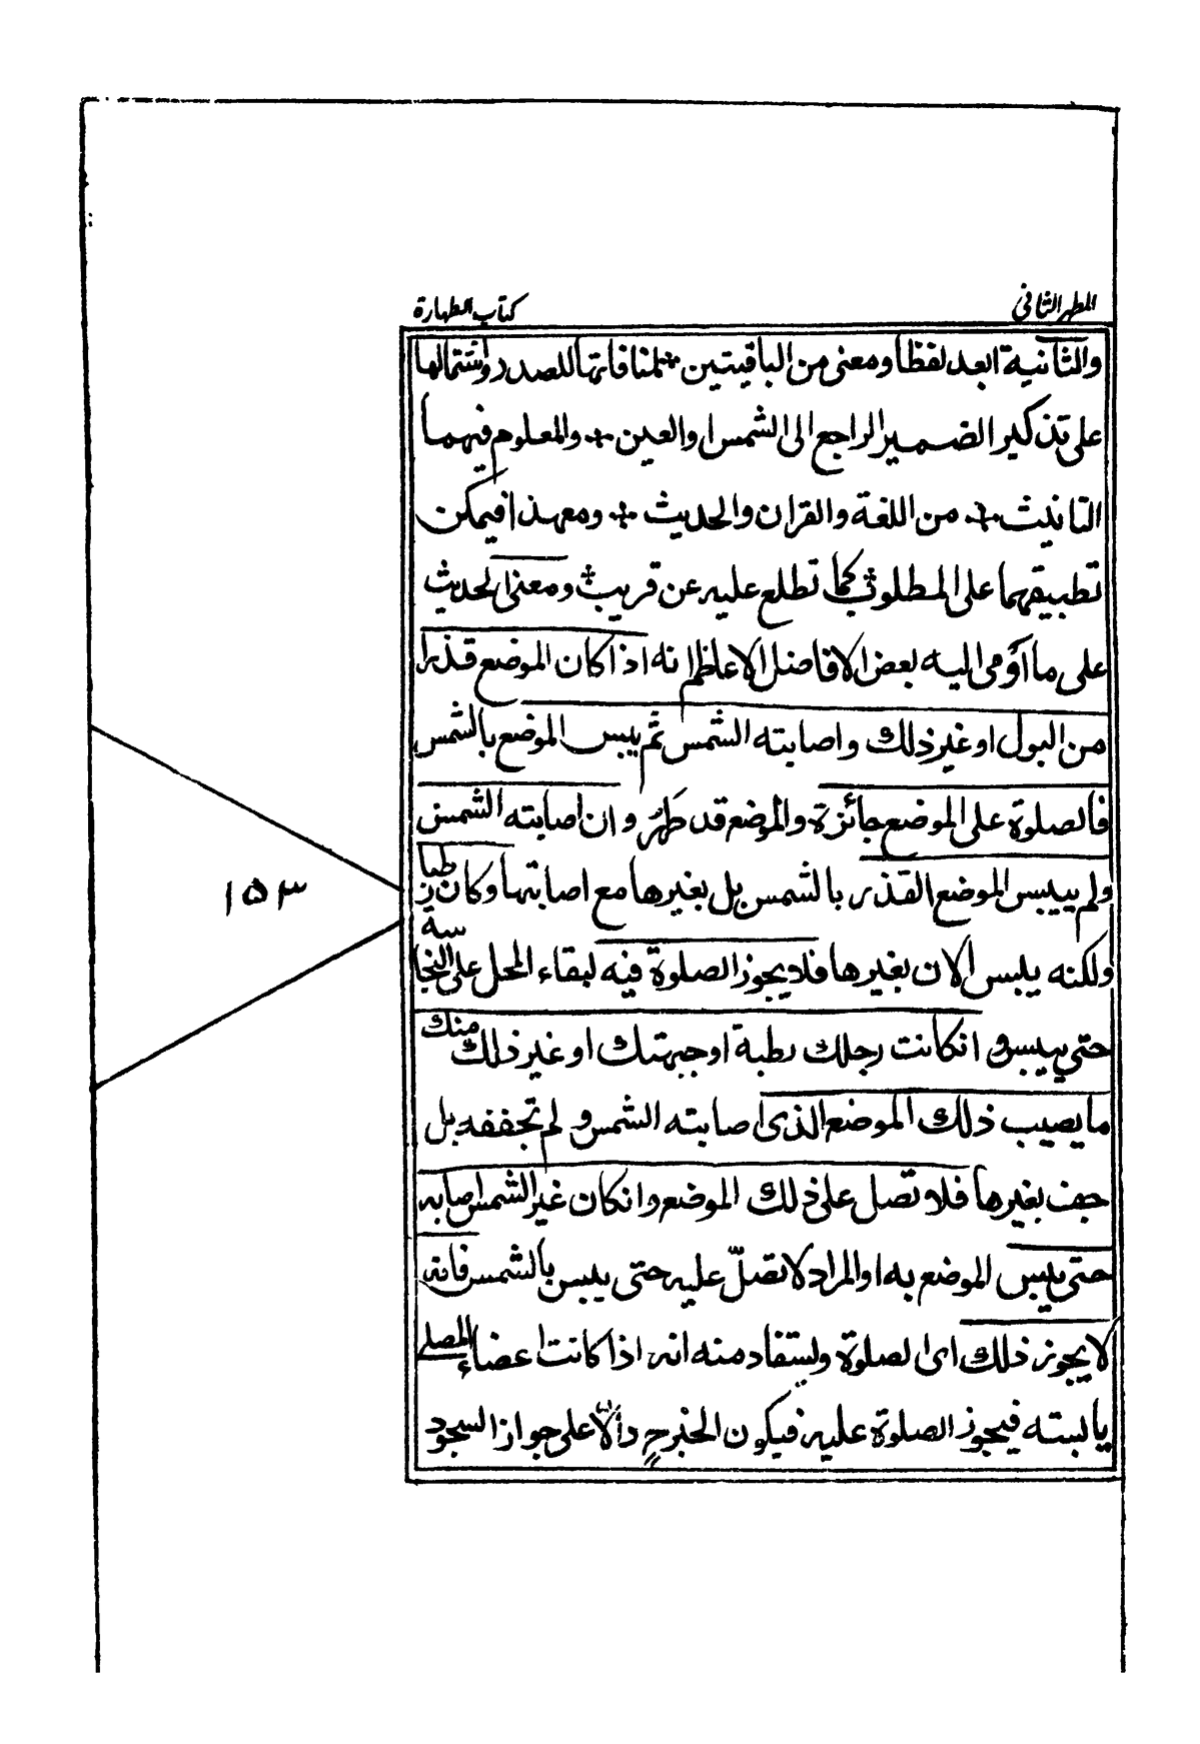 المطهر الثانى
كتاب الطهارة
والثانية ابعد لفظا ومعنى من الباقيتين لمنافاتها للصدر واشتمالها
على تذكير الضمير الراجع الى الشمس او العين والمعلوم فيهما
التانيث من اللغة والقران والحديث ومعهذا فيمكن
تطبيقهما على المطلوب كما تطلع عليه عن قريب ومعنى الحديث
على ما اومى اليه بعض الافاضل الاعاظم انه اذا كان الموضع قذرا
من البول او غير ذلك واصابته الشمس ثم يبس الموضع بالشمس
فالصلوة على الموضع جائزة والموضع قد طهر وان اصابته الشمس
ولم ييبس الموضع القذر بالشمس بل بغيرها مع اصابتها وكان رطبا
ولكنه يبس الان بغيرها فلا يجوز الصلوة فيه لبقاء المحل على النجاسة
حتى ييبس و انكانت رجلك رطبة او جبهتك او غير ذلك منك
ما يصيب ذلك الموضع الذى اصابته الشمس و لم تجففه بل
جف بغيرها فلا تصل على ذلك الموضع وانكان غير الشمس اصابه
حتى ييبس الموضع به او المراد لا تصلّ عليه حتى ييبس بالشمس فانه
لا يجوز ذلك اى الصلوة ويستفاد منه انه اذا كانت اعضاء المصلى
يابسته فيجوز الصلوة عليه فيكون الخبر ح دالا على جواز السجود
١٥٣